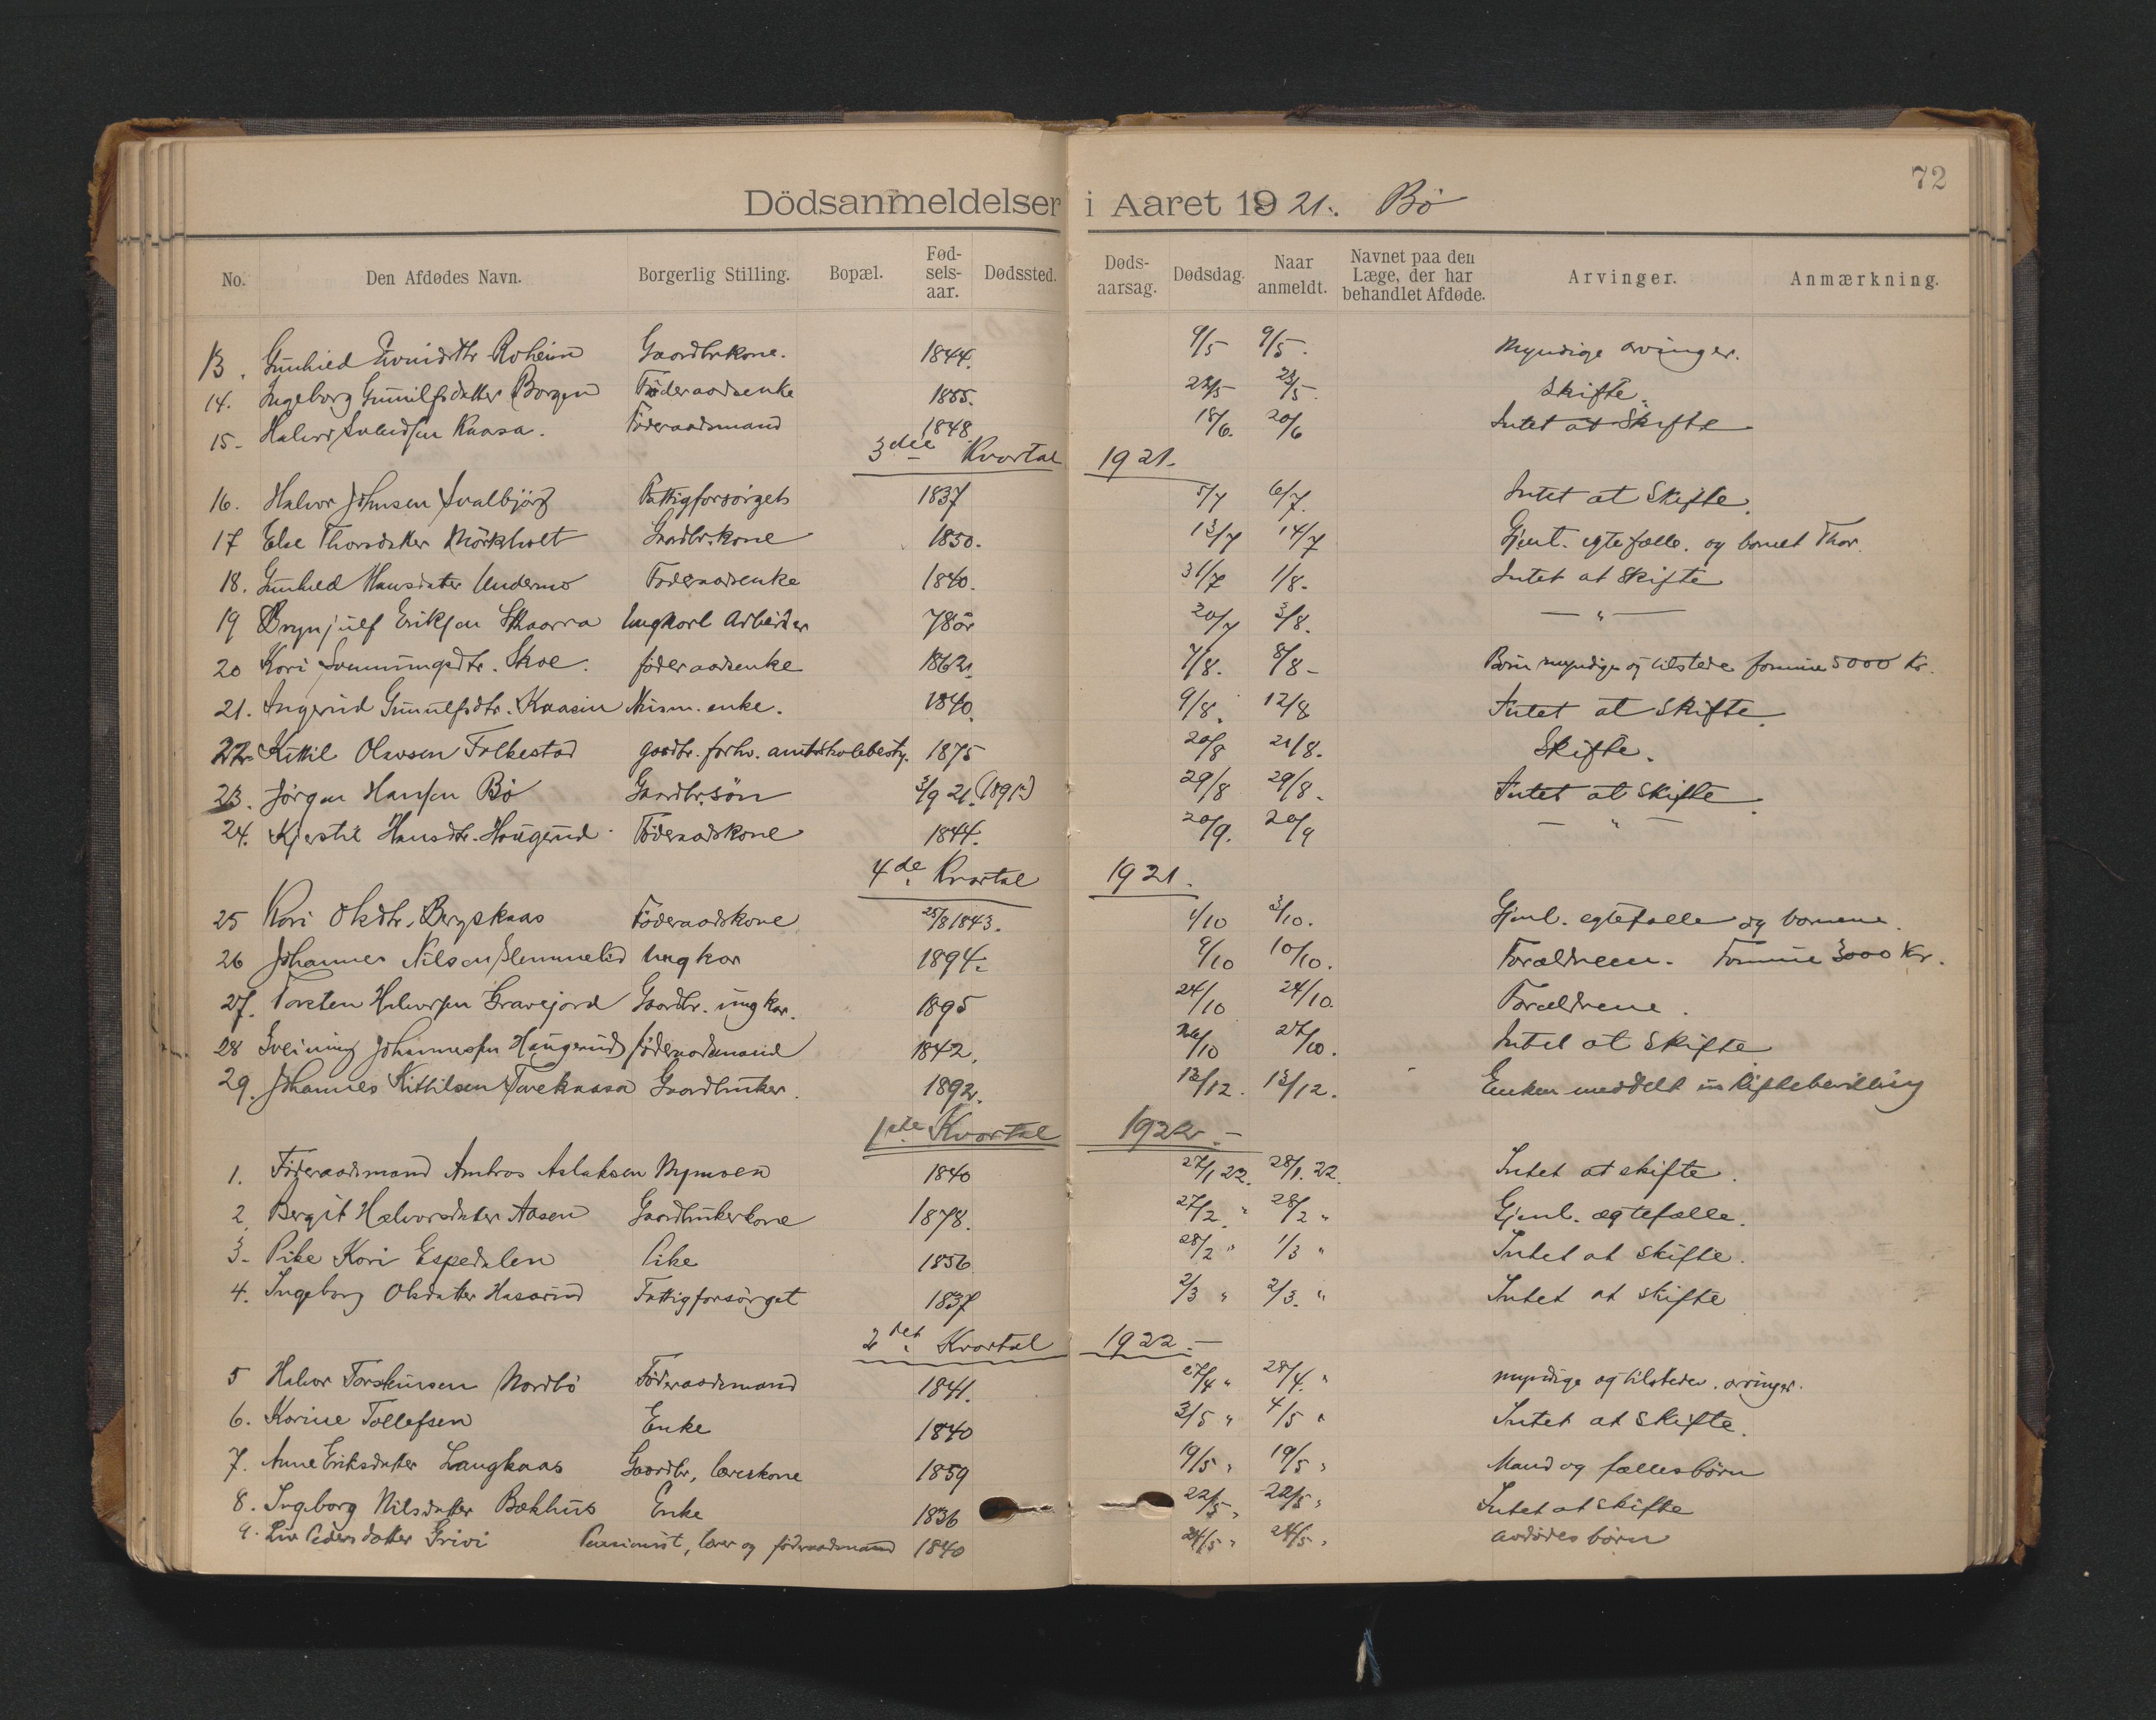 72
Dödsanmeldelser i Aaret 1921. Bö
No. Den Afdødes Navn. Borgerlig Stilling. Bopæl. Fød-sels-aar. Dødssted. Døds-aarsag. Dødsdag. Naar anmeldt. Navnet paa den Læge, der har behandlet Afdøde. Arvinger. Anmærkning.
13. Gunhild Roheim Gaardbrkone. 1844. 9/5 9/5. Myndige arvinger.
14. Ingeborg Gunulfsdatter Borgen Föderaadsenke 1855. 22/5 23/5. Skifte.
15. Halvor Svendsen Kaasa. Föderaadsmand 1848. 18/6. 20/6 Intet at Skifte
3die Kvartal 1921.
16. Halvor Johnsen Svalbjörg Fattigforsörget 1837 5/7 6/7. Intet at Skifte.
17 Else Thorsdatter Mörkholt Gaardbr.kone 1850. 13/7 14/7 Gjenl. egtefælle. og barnet Thor.
18. Gunhild Hansdatter Undermo Föderaadsenke 1840. 31/7 1/8. Intet at Skifte
19 Brynjulf Eriksen Skaarra Ungkarl Arbeider 78 år 20/7 3/8. — " —
20 Kari Svenningsdtr. Skoe. föderaadsenke 1862. 7/8. 8/8 – Börn myndige og tilstede formue 5000 Kr.
21. Ingerid Gunulfsdtr. Kaasin Husm. enke. 1840. 9/8. 12/8 Intet at Skifte.
22. Kittil Olavsen Folkestad gaardbr. forhv. amtskolebesty. 1875 20/8 21/8. Skifte.
23. Jörgen Hansen Bö Gaardbr.sön 3/9 21. 29/8 29/8. Intet at Skifte.
24. Kjerstie Hansdtr. Haugerud. Föderaadskone 1844. 20/9. 20/9 — " —
4de Kvartal 1921.
25 Kari Olsdtr. Bergskaas Föderaadskone 25/8 1843. 1/10 3/10. Gjenl. egtefælle og barnene.
26 Johannes Nilsen Slemmelid Ungkar 1894. 9/10 10/10. Forældrene. Formue 3000 Kr.
27. Torsten Halvorsen Gravejord Gaardbr. ungkar. 1895 24/10 24/10. Forældrene.
28 Sveinung Johannessen Haugerud föderaadsmand 1842. 26/10 27/10. Intet at Skifte
29. Johannes Kittilsen Torekaasa Gaardbruker. 1892. 12/12. 13/12. Enken meddelt uskiftebevilling
1ste Kvartal 1922. –
1. Föderaadsmand Ambros Aslaksen Nymoen 1840 27/1 22. 28/1. 22. Intet at skifte.
2. Bergit Halvorsdatter Aasen Gaardbrukerkone 1878. 27/2 " 28/2 " Gjenl. ægtefælle.
3. Pike Kari Espedalen Pike 1856 28/2 " 1/3 " Intet at skifte.
4. Ingeborg Olsdatter Hasarud Fattigforsörget 1837 2/3 " 2/3. " Intet at skifte
2det Kvartal 1922. –
5 Halvor Torsteinsen Nordbö Föderaadsmand 1841. 27/4 " 28/4. " myndige og tilstedev. arvinger.
6. Karine Tollefsen Enke 1840 3/5 " 4/5 " Intet at skifte.
7. Anne Eriksdatter Langkaas Gaardbr, lærerkone 1859 19/5 " 19/5 " Mand og fællesbörn
8. Ingeborg Nilsdatter Bækhus Enke 1836 22/5 " 22/5 " Intet at skifte
9. Liv Pedersdatter Grivi Pensionist, lærer og föderaadsmand 1840 24/5 " 24/5 " avdödes börn